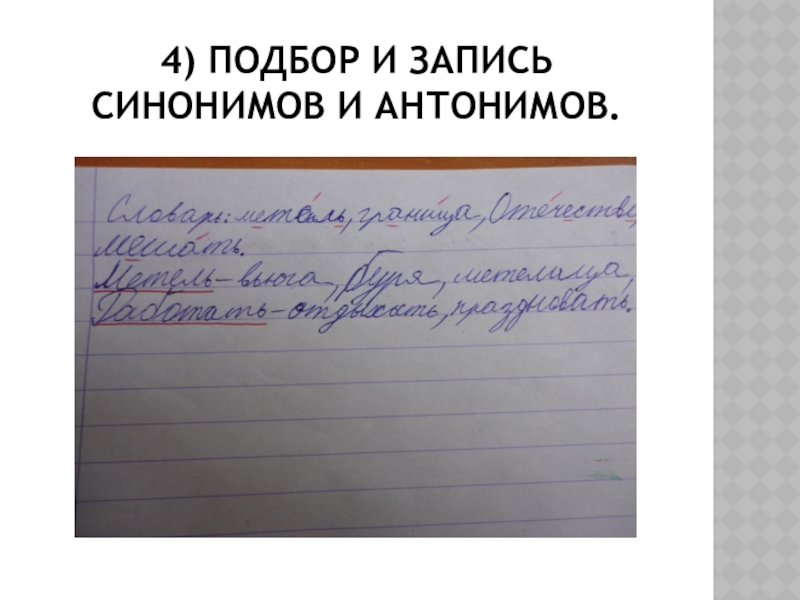 4) ПОДБОР И ЗАПИСЬ
СИНОНИМОВ И АНТОНИМОВ.
Словарь: мете́ль, грани́ца, Оте́чество,
меша́ть.
Метель – вьюга, буря, метелица,
Работать – отдыхать, праздновать.